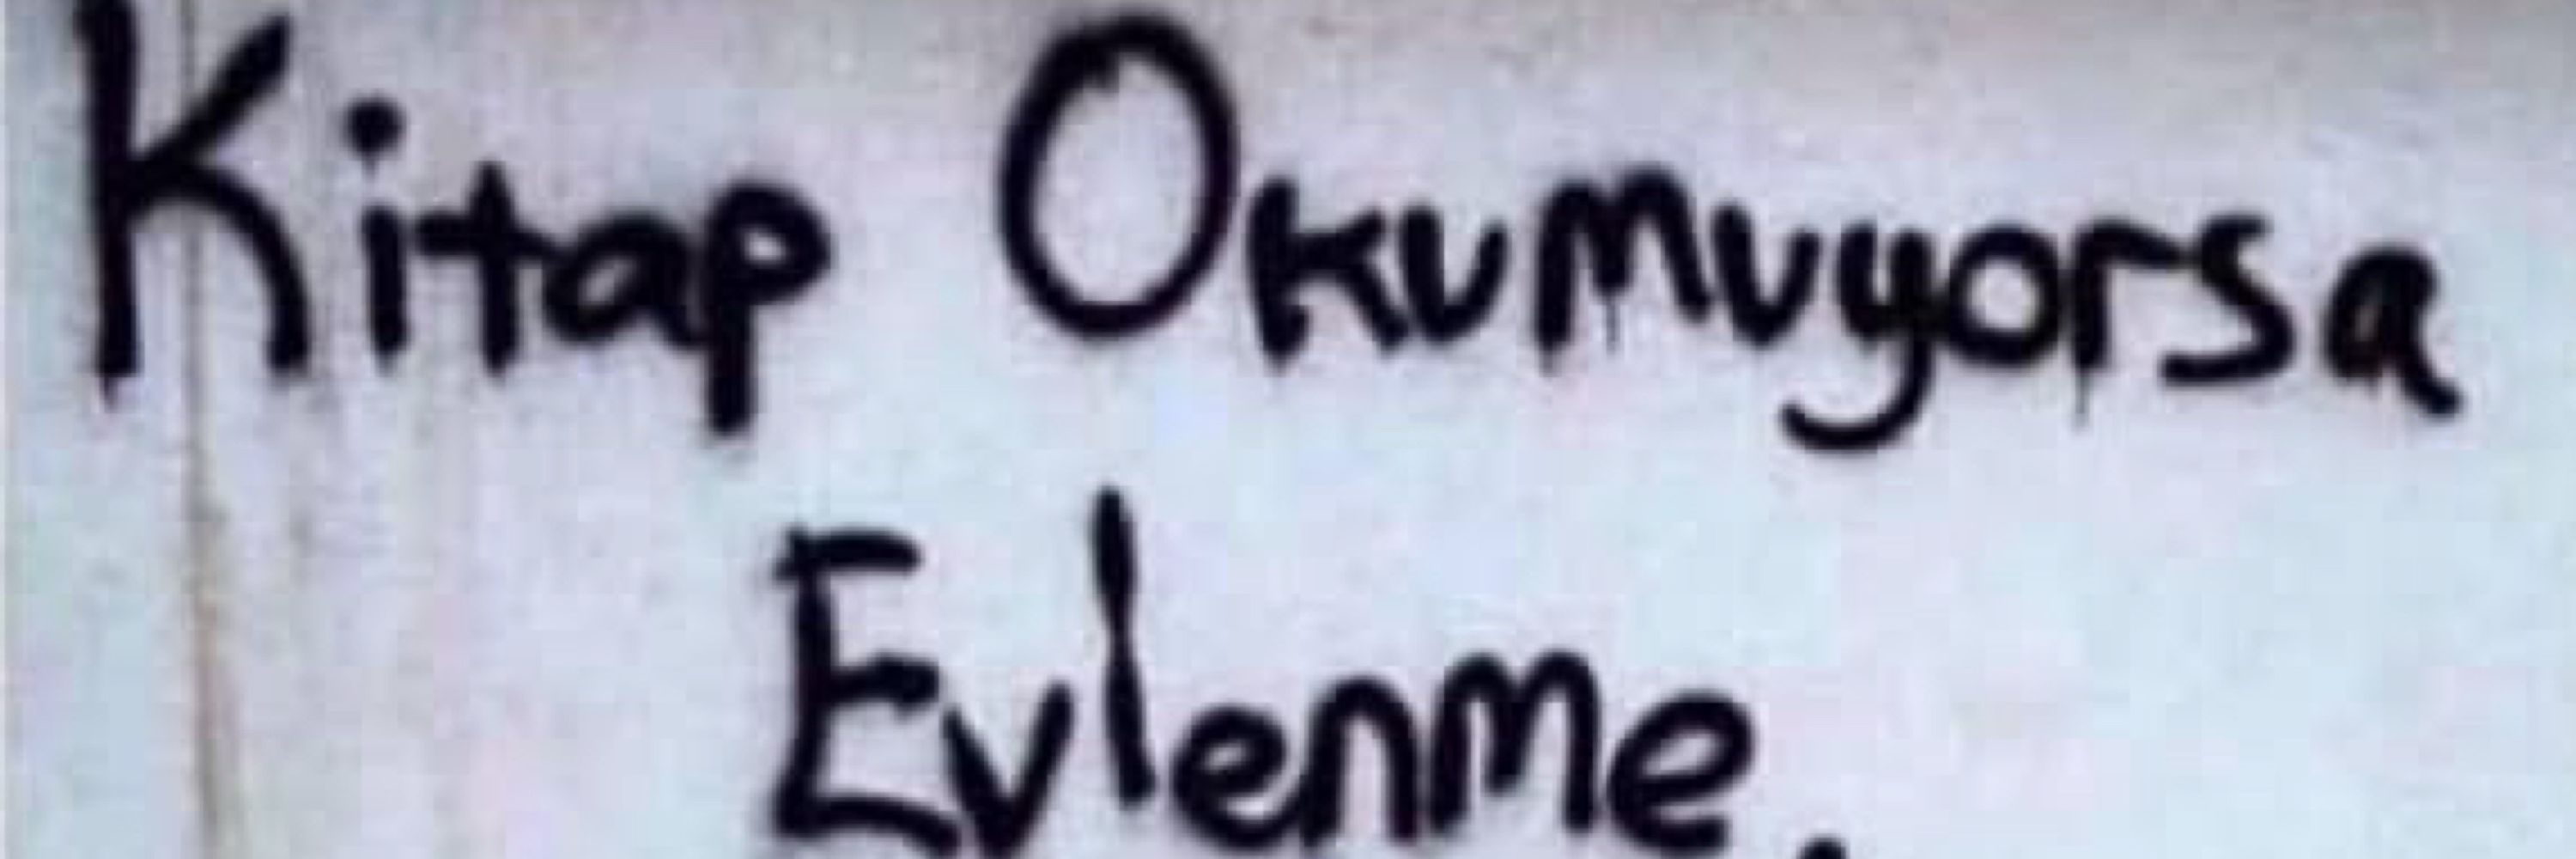 Kitap Okumuyorsa
Evlenme.